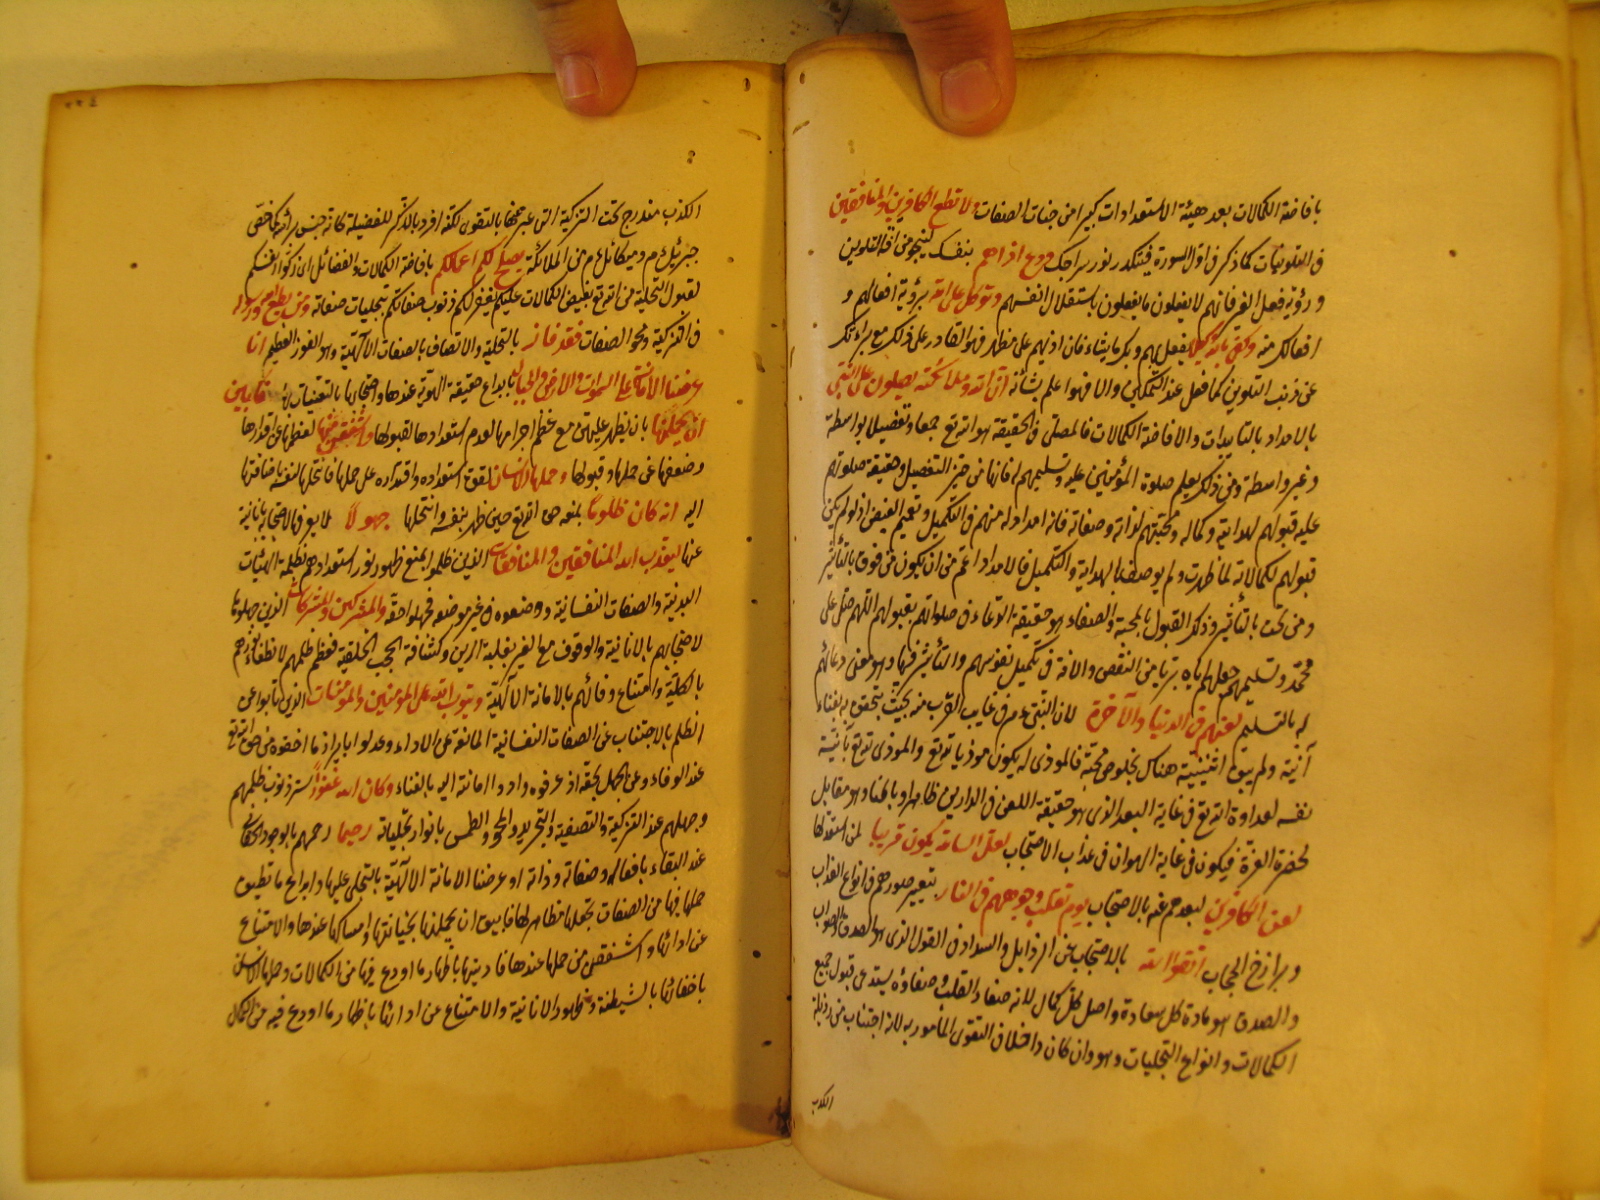 بافاضة الكمالات بعد هيئة الاستعدادات كبيرا من جنات الصفات ولا تطع الكافرين والمنافقين
فى التلوينات كما ذكر فى اول السورة فيتكدر نور سراجك ودع اذاهم بنفسك لينجو من آفة التلوين
و رؤية فعل الغير فانهم لا يفعلون ما يفعلون باستقلال انفسهم وتوكل على الله برؤية افعالهم و
افعالك منه وكفى بالله وكيلا يفعل بهم وبك ما يشاء فان اذيهم على مظهر فهو القادر على ذلك مع براءتك
عن ذنب التلوين كما فعل عند التمكين والا فهو اعلم بشأنه ان الله وملائكته يصلون على النبى
بالامداد بالتأييدات والافاضة الكمالات فالمصلى فى الحقيقة هو الله تع جمعا وتفصيلا بواسطة
وغير واسطة ومن ذلك يعلم صلوة المؤمنين عليه وتسليمهم فانها من حيز التفصيل وحقيقة صلوتهم
عليه قبولهم لهدايته وكماله ومحبتهم لذاته وصفاته فانه امداد له منهم فى التكميل وتعميم الفيض اذ لو لم يكن
قبولهم لكمالاته لما ظهرت ولم يوصف بالهداية والتكميل فالامداد اعم من ان يكون من فوق بالتأثير
ومن تحت بالتأثر وذلك القبول بالمحبة والصفاء هو حقيقة الدعاء فى صلواتهم بقولهم اللهم صل على
محمد وتسليمهم جعلهم اياه بريا من النقص والافة فى تكميل نفوسهم والتأثير فيها وهو معنى دعائهم
له بالتسليم لعنهم فى الدنيا والآخرة لان النبى عم فى غايب القرب منه بحيث يتحقق به بفناء
آنيته ولم يبق اثنينية هناك بخلوص محبته فالموذى له يكون موذيا لله تع والموذى لله تع بآنية
نفسه لعداوة الله تع فى غاية البعد الذى هو حقيقة اللعن فى الدارين ظاهرا وباطنا وهو مقابل
لحضرة العزة فيكون فى غاية الهوان فى عذاب الاحتجاب لعل الساعة يكون قريبا لمن استعد لها
لعن الكافرين لبعدهم عنه بالاحتجاب يوم تقلب وجوههم فى النار بتغيير صورهم فى انواع العذاب
وبرازخ الحجاب اتقوا الله بالاجتناب عن الرذايل والسداد فى القول الذى هو الصدق والصواب
والصدق هو مادة كل سعادة واصل كل كمال لانه صفاء القلب وصفاؤه يستدعى قبول جميع
الكمالات وانواع التجليات وهو وان كان داخلا فى التقوى المأمور به لانه اجتناب من رذيلة
الكذب
الكذب مندرج تحت التزكية التى عبر عنها بالتقوى لكنه افرد بالذكر للفضيلة كانه جنس برأسه كما خص
جبرئيل عم وميكائل عم من الملائكة يصلح لكم اعمالكم بافاضة الكمالات والفضائل اى زكوا انفسكم
لقبول التحلية من الله تع بفيض الكمالات عليكم يغفر لكم ذنوب صفاتكم بتجليات صفاته ومن يطع الله ورسوله
فى التزكية ومحو الصفات فقد فاز بالتحلية والاتصاف بالصفات الآلهية وهو الفوز العظيم انا
عرضنا الامانة على السموات والارض والجبال بايداع حقيقة الهوية عندها واحتجابها بالتعينات بها فابين
ان يحملنها بان تظهر عليهن مع عظم اجرامها لعدم استعدادها لقبولها واشفقن منها لعظمها عن اقدارها
وضعفها عن حملها وقبولها وحملها الانسان لقوة استعداده واقتداره على حملها فانتحلها لنفسه باضافتها
اليه انه كان ظلوما بمنعه حق الله تع حين ظهر بنفسه وانتحلها جهولا لما يعرفها لاحتجابه بانانيته
عنها ليعذب الله المنافقين والمنافقات الذين ظلموا بمنع ظهور نور استعدادهم بظلمة الهيئات
البدنية والصفات النفسانية ووضعوه فى غير موضعه فجهلوا حقه والمشركين والمشركات الذين جهلوا
لاحتجابهم بالانانية والوقوف مع الغير بغلبة الرين وكثافة الحجب الخلقية فعظم ظلمهم لانطفاء نورهم
بالكلية وامتناع وفائهم بالامانة الآلهية ويتوب الله على المؤمنين والمؤمنات الذين تابوا عن
الظلم بالاجتناب عن الصفات النفسانية المانعة عن الاداء وعدلوا بابراز ما اخفوه من حق الله تع
عند الوفاء وعن الجهل بحقه اذ عرفوه وادوا امانته اليه بالفناء وكان الله غفورا ستر ذنوب ظلمهم
وجهلهم عند التزكية والتصفية والتجريد والمحو والطمس بانوار تجلياته رحيما رحمهم بالوجود الحقانى
عند البقاء بافعاله وصفاته وذاته او عرضنا الامانة الآلهية بالتجلى عليها وايداع ما تطيق
حملها فيها من الصفات بجعلها مظاهر لها فابين ان يحملنها بخيانتها وامساكها عندها والامتناع
عن ادائها واشفقن من حملها عندها فادينها باظهار ما اودع فيها من الكمالات وحملها الانسان
باخفائها بالشيطنة وظهور الانانية والامتناع عن ادائها باظهار ما اودع فيه من الكمال